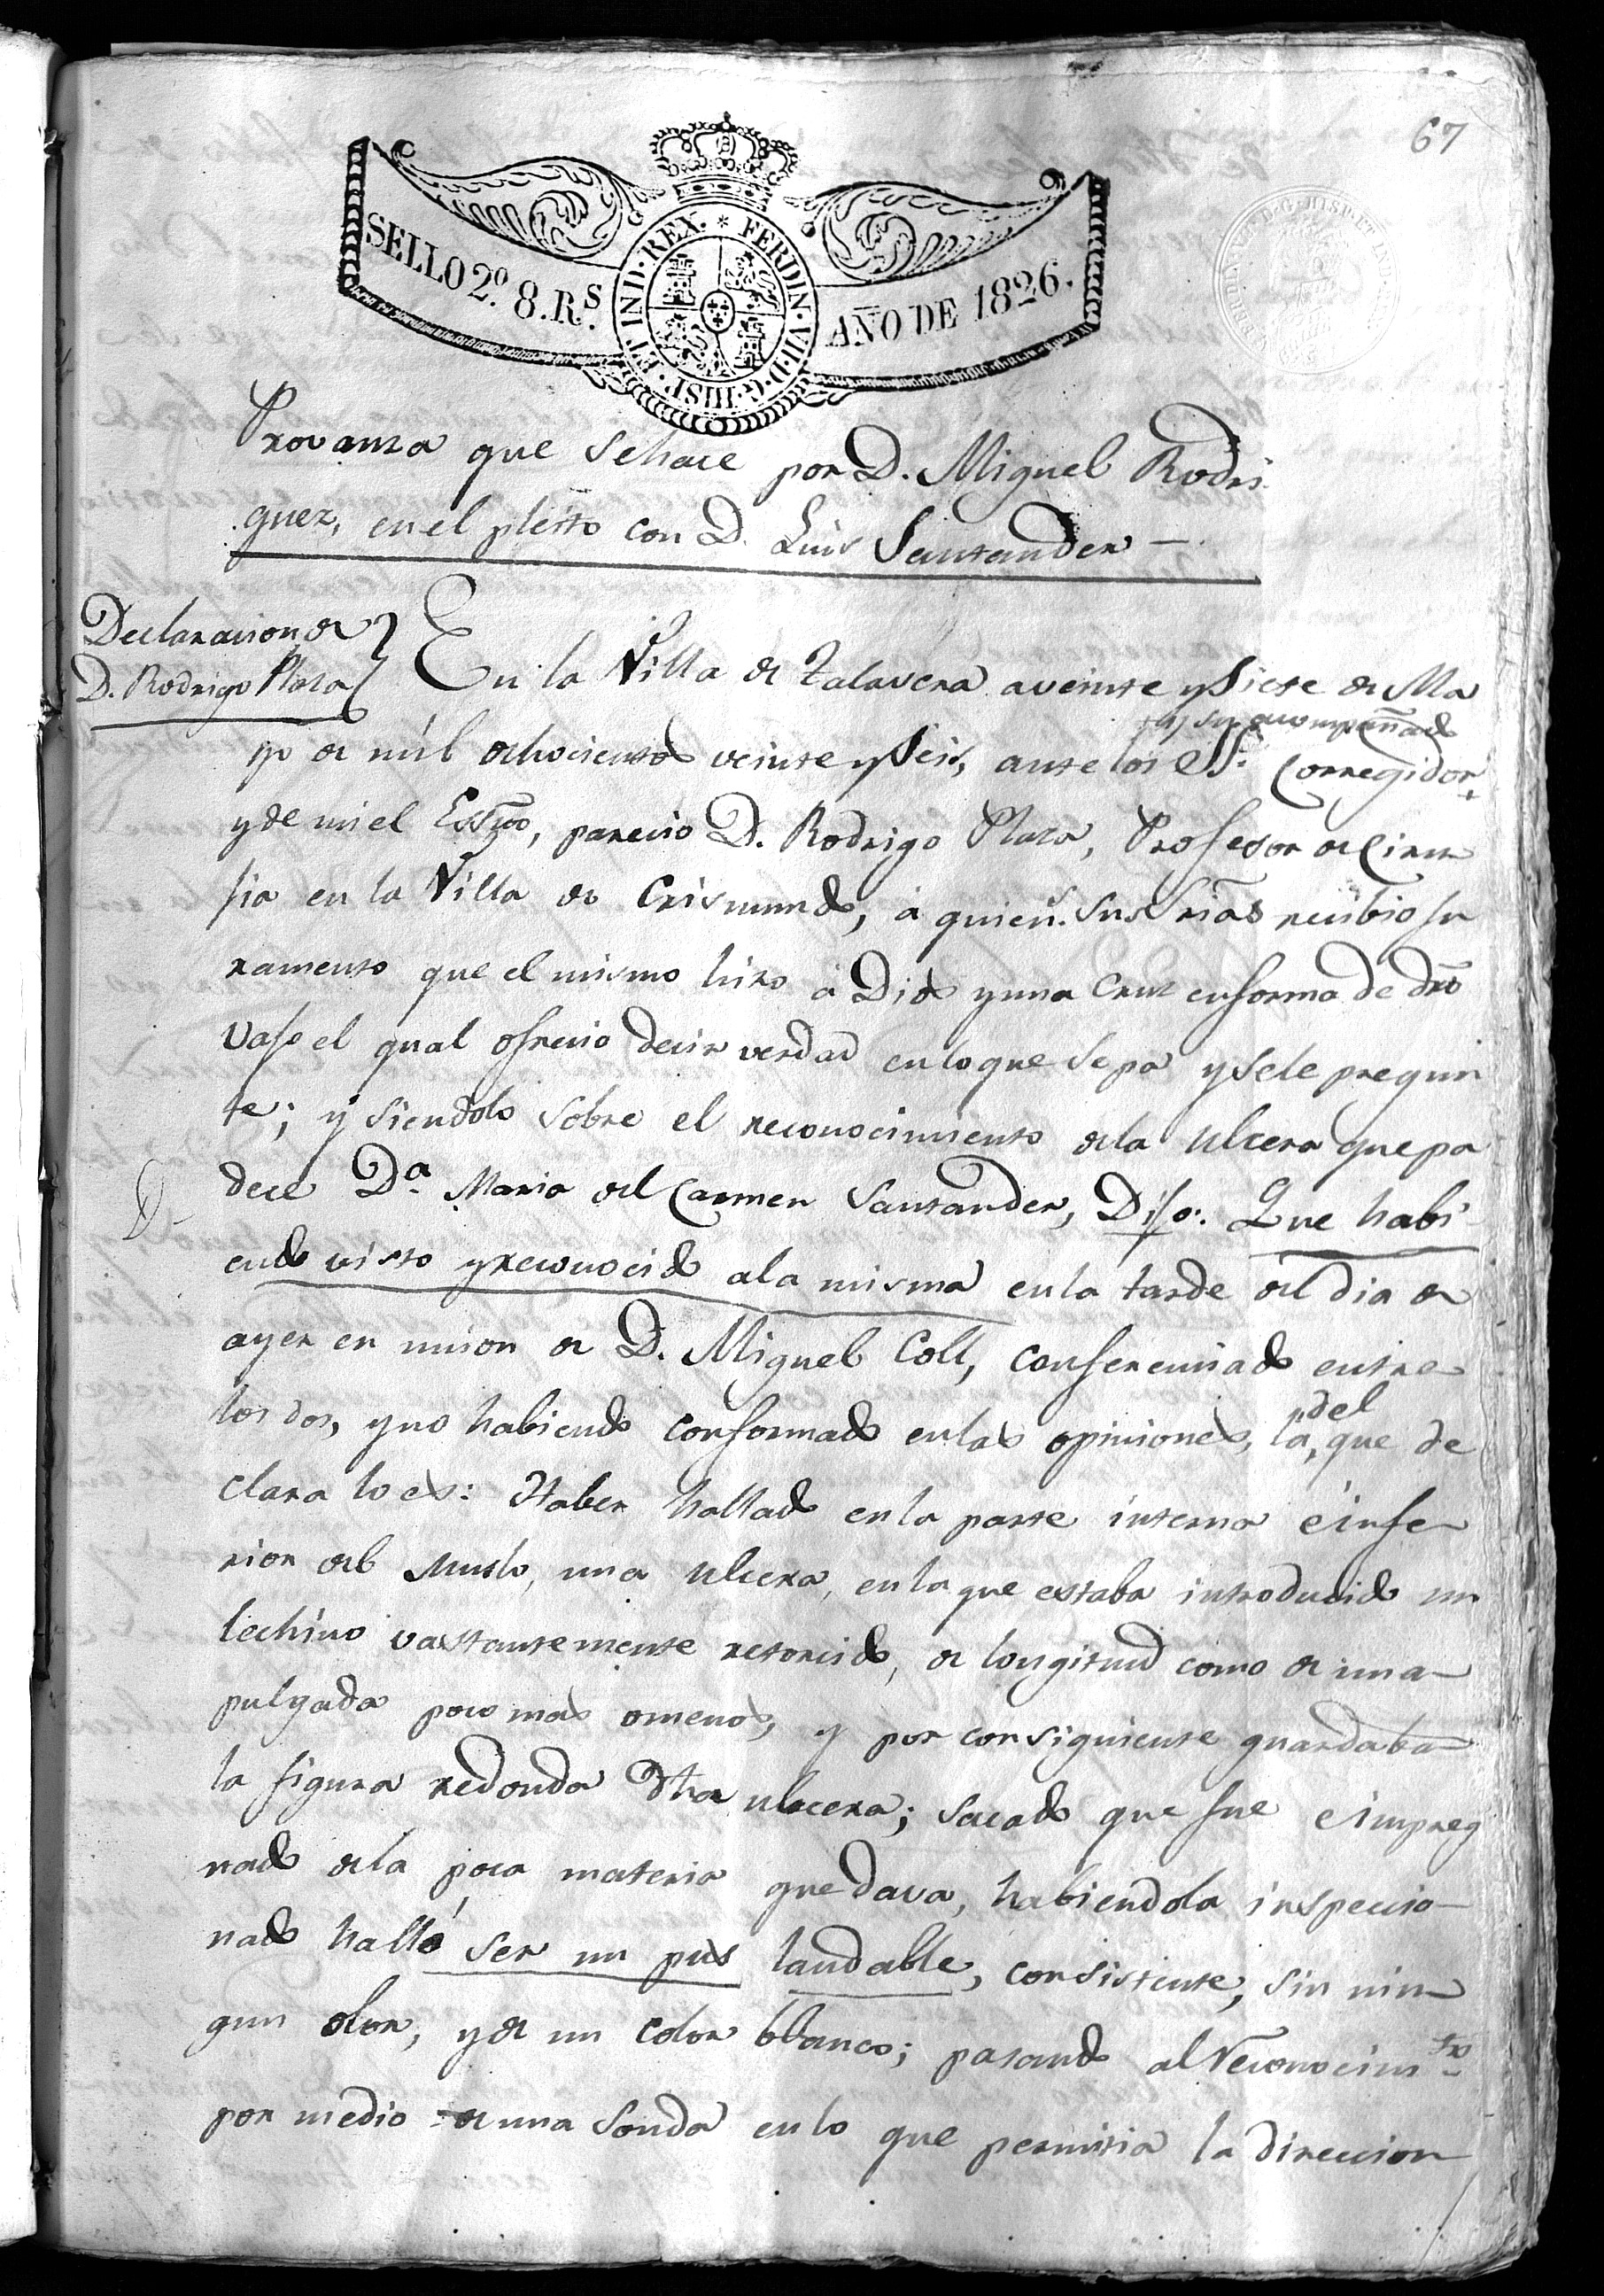 67
SELLO 2º. 8. Rs.
FERDIN. VII. D. G. HISP. ET IND. REX.
AÑO DE 1826.
Provanza que sehace por D. Miguel Rodri
guez, en el pleito con D. Luis Santander
Declaracion de
D. Rodrigo Plaza
En la Villa de Talavera aveinte y siete de Ma
y su acompañado
yo de mil ochocientos veinte y seis, ante los SS. Corregidor,
y de mi el Essno, parecio D. Rodrigo Plaza, Profesor de Ciru
jia en la Villa de Crismundo, á quien sus Srias recibio ju
ramento que el mismo hizo á Dios y una Cruz en forma de dro
vajo el qual ofrecio decir verdad en lo que sepa y se le pregun
te; y siendolo sobre el reconocimiento de la ulcera que pa
dece Da. Maria del Carmen Santander, Dijo: Que habi
endo visto y reconocido ala misma en la tarde del dia de
ayer en union de D. Miguel Coll, conferenciado entre
los dos, y no habiendo conformado en las opiniones, la del que de
clara lo es: Haber hallado en la parte interna é infe
rior del muslo, una ulcera, en la que estaba introducido un
lechino vastantemente retorcido, de longitud como de una
pulgada poco mas omenos, y por consiguiente guardaba
la figura redonda dha ulcera; sacado que fue e impreg
nado de la poca materia que dava, habiendola inspeccio
nado halló ser un pus laudable, consistente, sin nin
gun olor, y de un color blanco; pasando al Reconocimto
por medio de una sonda en lo que permitia la direccion